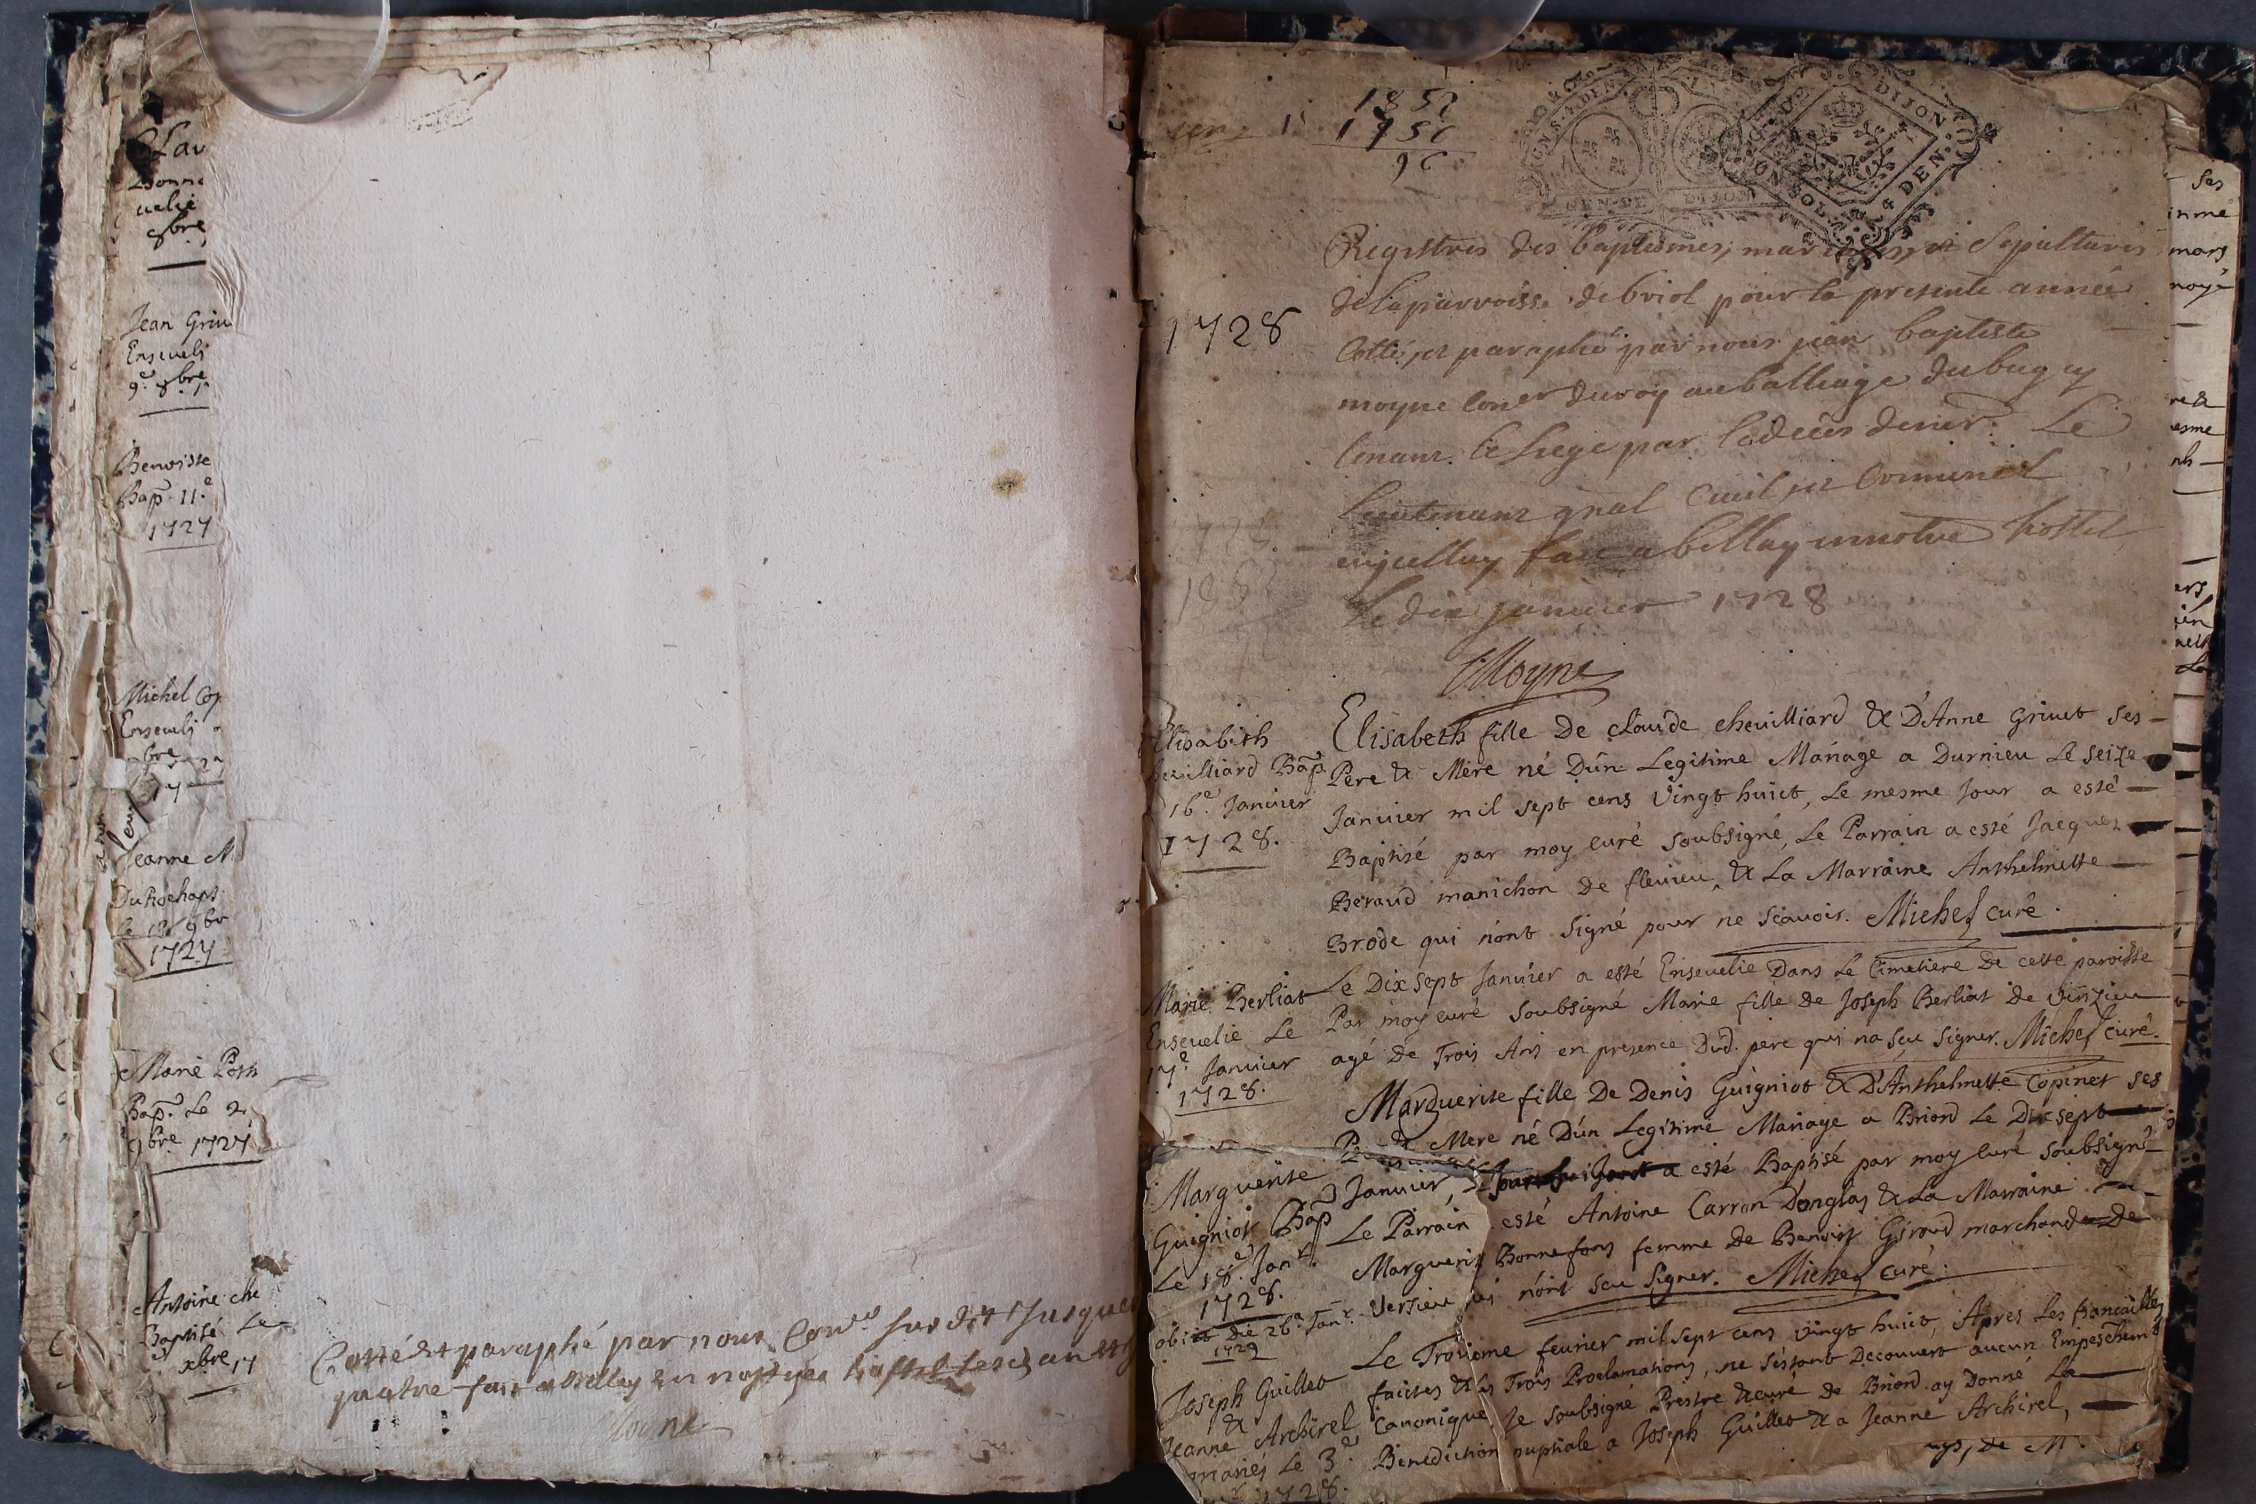 Jean Griu
Enseueli
Benoiste
Bap. 11.e
1727
Michel Cop
Enseueli
Jeanne M
DuRochapt
Le 12 9br
1727
Marie Poth
Bap. Le 2
9bre 1727
Antoine che
Baptisé Le
xbre 17
Cotté et paraphé par nous Con.er susdit Jusques
quatre fait a Belley en nostre hostel
Moyne
1852
1756
96
GEN. DE DIJON
DIJON
SOL. 4 DEN.
Registres des baptesmes, mariages et Sepultures
de la parroisse de briol pour la presente année
1728
Cotté et paraphé par nous jean baptiste
moyne Coner du roy au balliage du bugey
tenant le siege par le deces denier. Le
Lieutenant gnal Ciuil et Criminel
enjcelluy fait a belley en notre hostel
Le dix januier 1728
Moyne
Elisabeth
cheuilliard Bap.
16.e Januier
1728.
Elisabeth fille De claude cheuilliard & D'Anne Griuet ses
Pere & Mere né Dún Legitime Mariage a Durnieu Le seize
Januier mil sept cens Vingt huict, Le mesme Jour a esté
Baptisé par moy curé soubsigné, Le Parrain a esté Jacques
Beraud manichon de fleuieu, & La Marraine Anthelmette
Brode qui n'ont signé pour ne scauoir. Michel curé.
Marie Berliat
Enseuelie Le
17.e Januier
1728.
Le Dix sept Januier a esté Enseuelie Dans Le Cimetiere De cette paroisse
Par moy curé soubsigné Marie fille de Joseph Berliat de Vinzieu
agé De Trois Ans en presence Dud. pere qui na sçu signer. Michel curé.
Marguerite
Guigniot Bap
Le 18.e Janr.
1728.
obiit die 26.a Janr.
1729
Marguerite fille De Denis Guigniot & D'Anthelmette Copinet ses
P & Mere né Dún Legitime Mariage a Briord Le Dix sept
Januier, a esté Baptisé par moy curé soubsigné
Le Parrain esté Antoine Carron Donglas & La Marraine
Marguerit Bonnefons femme de Benoist Giroud marchand De
Versieu qui n'ont sceu signer. Michel curé.
Joseph Guillet
&
Jeanne Archirel
mariés Le 3.e
1728.
Le Troisieme feurier mil sept cens Vingt huict, Apres Les fiancailles
faictes & les Trois Proclamations, ne s'estant Decouuert aucun Empeschement
Canonique, Je soubsigné Prestre & curé de Briord ay Donné La
Benediction nuptiale a Joseph Guillet & a Jeanne Archirel,